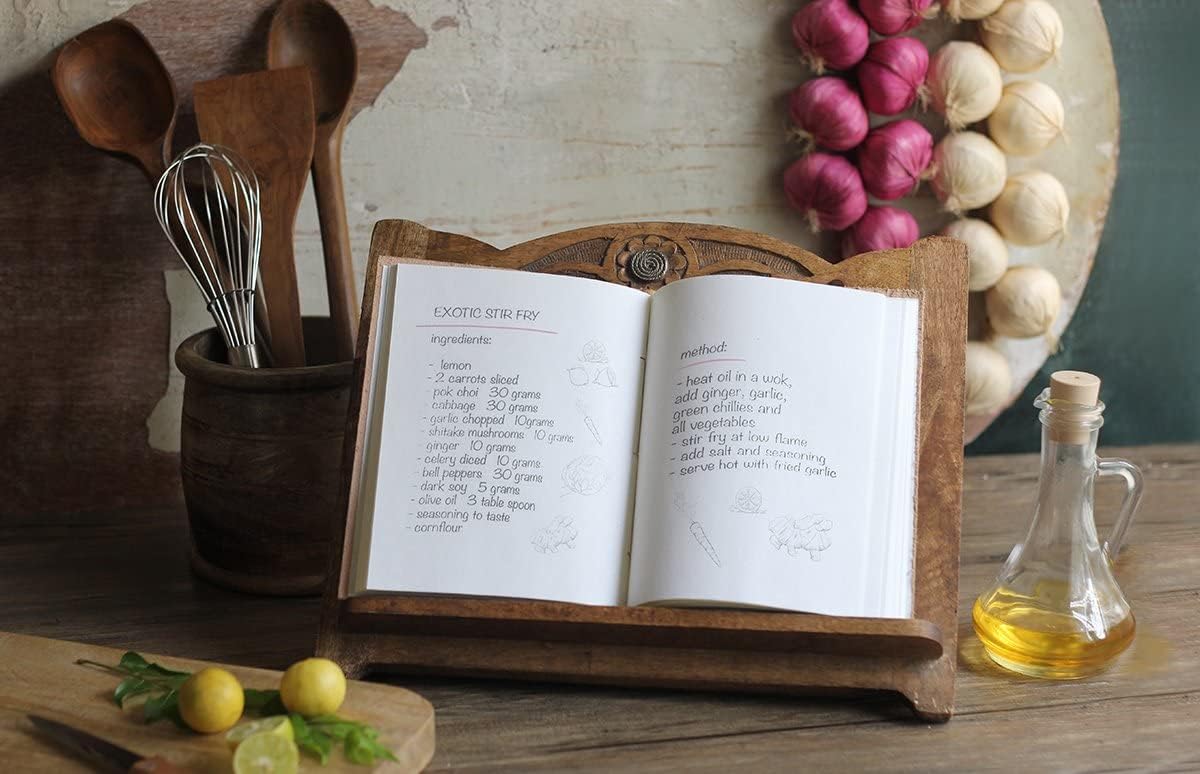 EXOTIC STIR FRY
ingredients:
- lemon
- 2 carrots sliced
pok choi 30 grams
- cabbage 30 grams
- garlic chopped 10grams
- shitake mushrooms 10 grams
ginger 10 grams
- celery diced 10 grams
- bell peppers 30 grams
- dark soy 5 grams
- olive oil 3 table spoon
- seasoning to taste
- cornflour
method:
- heat oil in a wok,
add ginger, garlic,
green chillies and
all vegetables
- stir fry at low flame
- add salt and seasoning
- serve hot with fried garlic